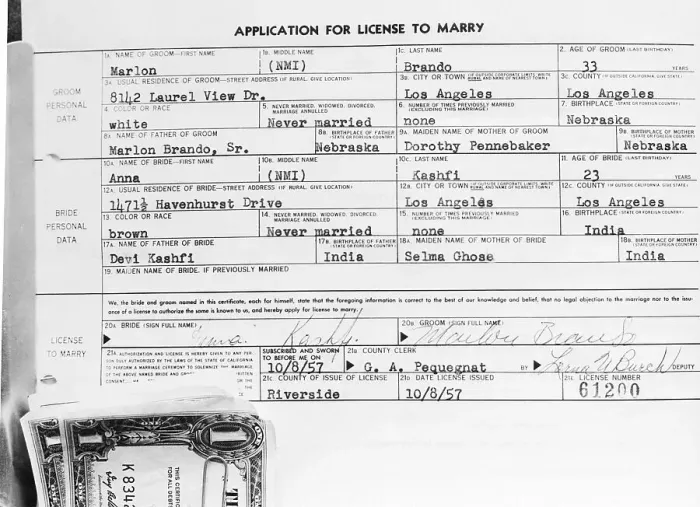 APPLICATION FOR LICENSE TO MARRY
GROOM PERSONAL DATA
1A. NAME OF GROOM—FIRST NAME
Marlon
1B. MIDDLE NAME
(NMI)
1C. LAST NAME
Brando
2. AGE OF GROOM (LAST BIRTHDAY)
33 YEARS
3A. USUAL RESIDENCE OF GROOM—STREET ADDRESS (IF RURAL, GIVE LOCATION)
8142 Laurel View Dr.
3B. CITY OR TOWN (IF OUTSIDE CORPORATE LIMITS, WRITE RURAL AND NAME OF NEAREST TOWN)
Los Angeles
3C. COUNTY (IF OUTSIDE CALIFORNIA, GIVE STATE)
Los Angeles
4. COLOR OR RACE
white
5. NEVER MARRIED, WIDOWED, DIVORCED, MARRIAGE ANNULLED
Never married
6. NUMBER OF TIMES PREVIOUSLY MARRIED (EXCLUDING THIS MARRIAGE)
none
7. BIRTHPLACE (STATE OR FOREIGN COUNTRY)
Nebraska
8A. NAME OF FATHER OF GROOM
Marlon Brando, Sr.
8B. BIRTHPLACE OF FATHER (STATE OR FOREIGN COUNTRY)
Nebraska
9A. MAIDEN NAME OF MOTHER OF GROOM
Dorothy Pennebaker
9B. BIRTHPLACE OF MOTHER (STATE OR FOREIGN COUNTRY)
Nebraska
BRIDE PERSONAL DATA
10A. NAME OF BRIDE—FIRST NAME
Anna
10B. MIDDLE NAME
(NMI)
10C. LAST NAME
Kashfi
11. AGE OF BRIDE (LAST BIRTHDAY)
23 YEARS
12A. USUAL RESIDENCE OF BRIDE—STREET ADDRESS (IF RURAL, GIVE LOCATION)
1471½ Havenhurst Drive
12B. CITY OR TOWN (IF OUTSIDE CORPORATE LIMITS, WRITE RURAL AND NAME OF NEAREST TOWN)
Los Angeles
12C. COUNTY (IF OUTSIDE CALIFORNIA, GIVE STATE)
Los Angeles
13. COLOR OR RACE
brown
14. NEVER MARRIED, WIDOWED, DIVORCED, MARRIAGE ANNULLED
Never married
15. NUMBER OF TIMES PREVIOUSLY MARRIED (EXCLUDING THIS MARRIAGE)
none
16. BIRTHPLACE (STATE OR FOREIGN COUNTRY)
India
17A. NAME OF FATHER OF BRIDE
Devi Kashfi
17B. BIRTHPLACE OF FATHER (STATE OR FOREIGN COUNTRY)
India
18A. MAIDEN NAME OF MOTHER OF BRIDE
Selma Ghose
18B. BIRTHPLACE OF MOTHER (STATE OR FOREIGN COUNTRY)
India
19. MAIDEN NAME OF BRIDE, IF PREVIOUSLY MARRIED
LICENSE TO MARRY
We, the bride and groom named in this certificate, each for himself, state that the foregoing information is correct to the best of our knowledge and belief, that no legal objection to the marriage nor to the issu-
ance of a license to authorize the same is known to us, and hereby apply for license to marry.
20A. BRIDE (SIGN FULL NAME)
Anna Kashfi
20B. GROOM (SIGN FULL NAME)
Marlon Brando
21A. AUTHORIZATION AND LICENSE IS HEREBY GIVEN TO ANY PER-
SON DULY AUTHORIZED BY THE LAWS OF THE STATE OF CALIFORNIA
TO PERFORM A MARRIAGE CEREMONY TO SOLEMNIZE THE MARRIAGE
OF THE ABOVE NAMED BRIDE AND
CONSENT
SUBSCRIBED AND SWORN TO BEFORE ME ON
10/8/57
21B. COUNTY CLERK
G. A. Pequegnat
BY Lerna N Burch DEPUTY
21C. COUNTY OF ISSUE OF LICENSE
Riverside
21D. DATE LICENSE ISSUED
10/8/57
21E. LICENSE NUMBER
61200
1
K 834
THIS CERTIFIC
FOR ALL DEBT